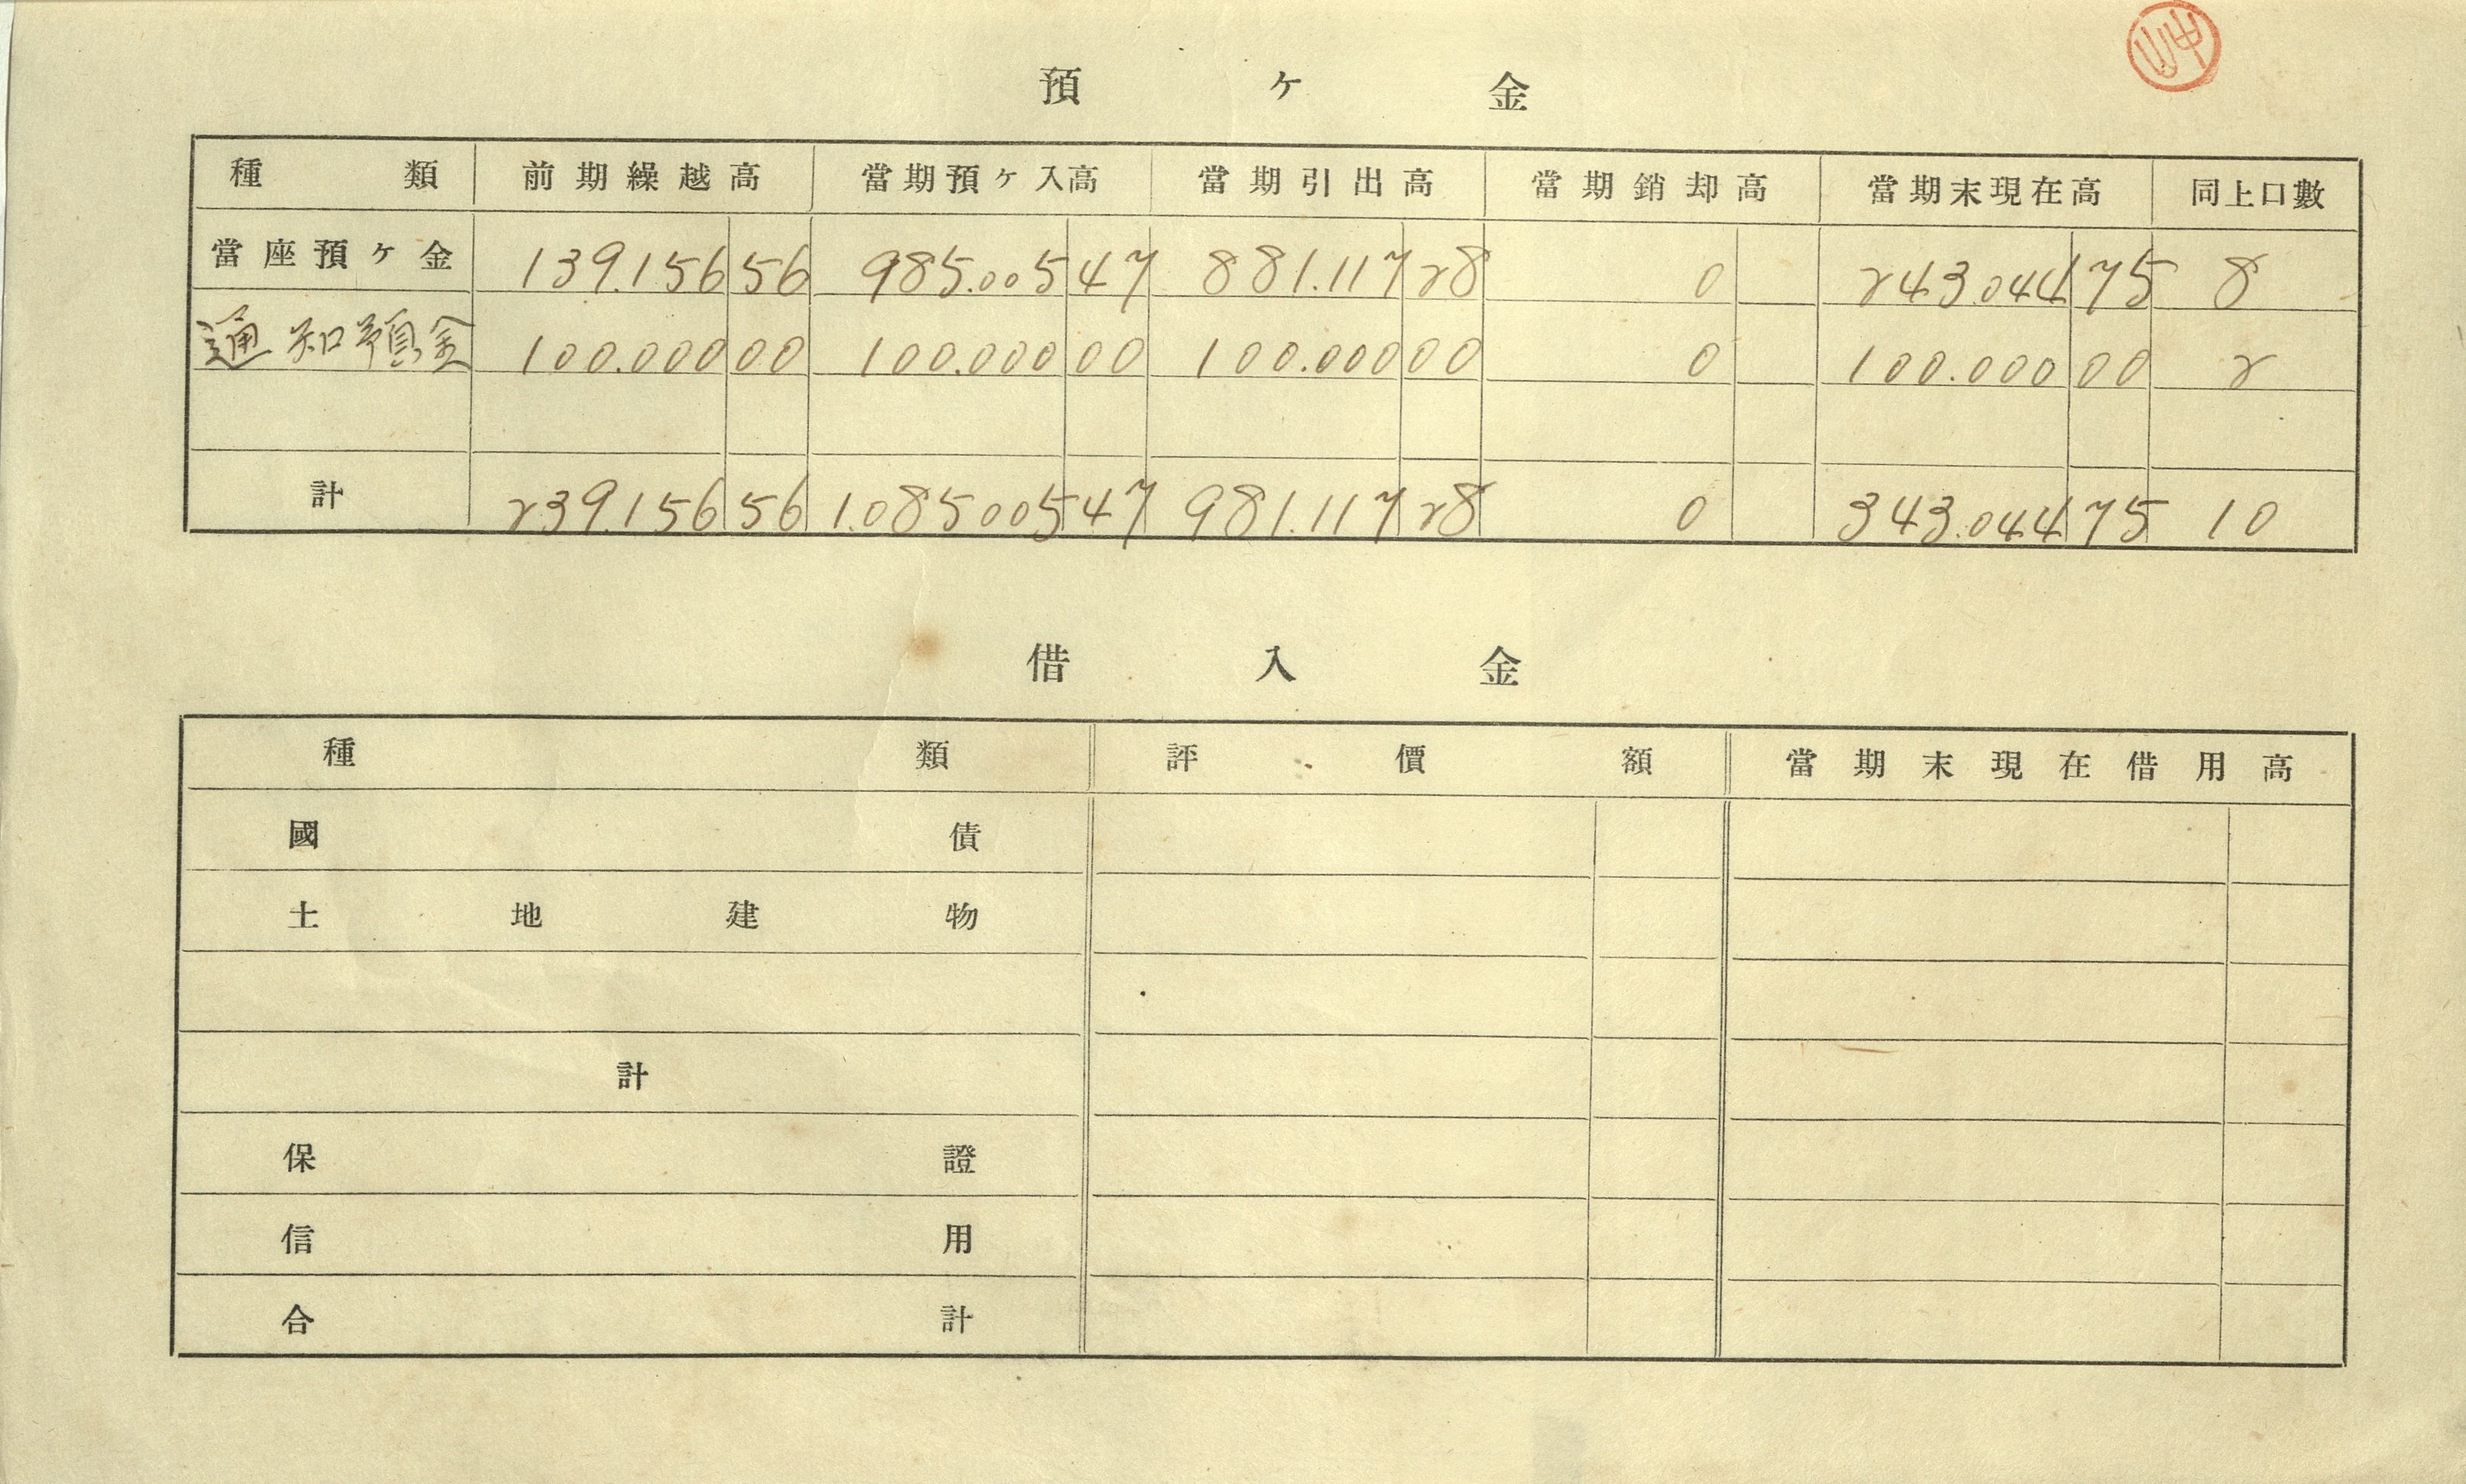 預ケ金
種類 前期繰越高 當期預ケ入高 當期引出高 當期銷却高 當期末現在高 同上口數
當座預ケ金 139.156 56 985.005 47 881.117 28 0 243.044 75 8
通知預金 100.000 00 100.000 00 100.000 00 0 100.000 00 2
計 239.156 56 1.085005 47 981.117 28 0 343.044 75 10
借入金
種類 評價額 當期末現在借用高
國債
土地建物
計
保證
信用
合計